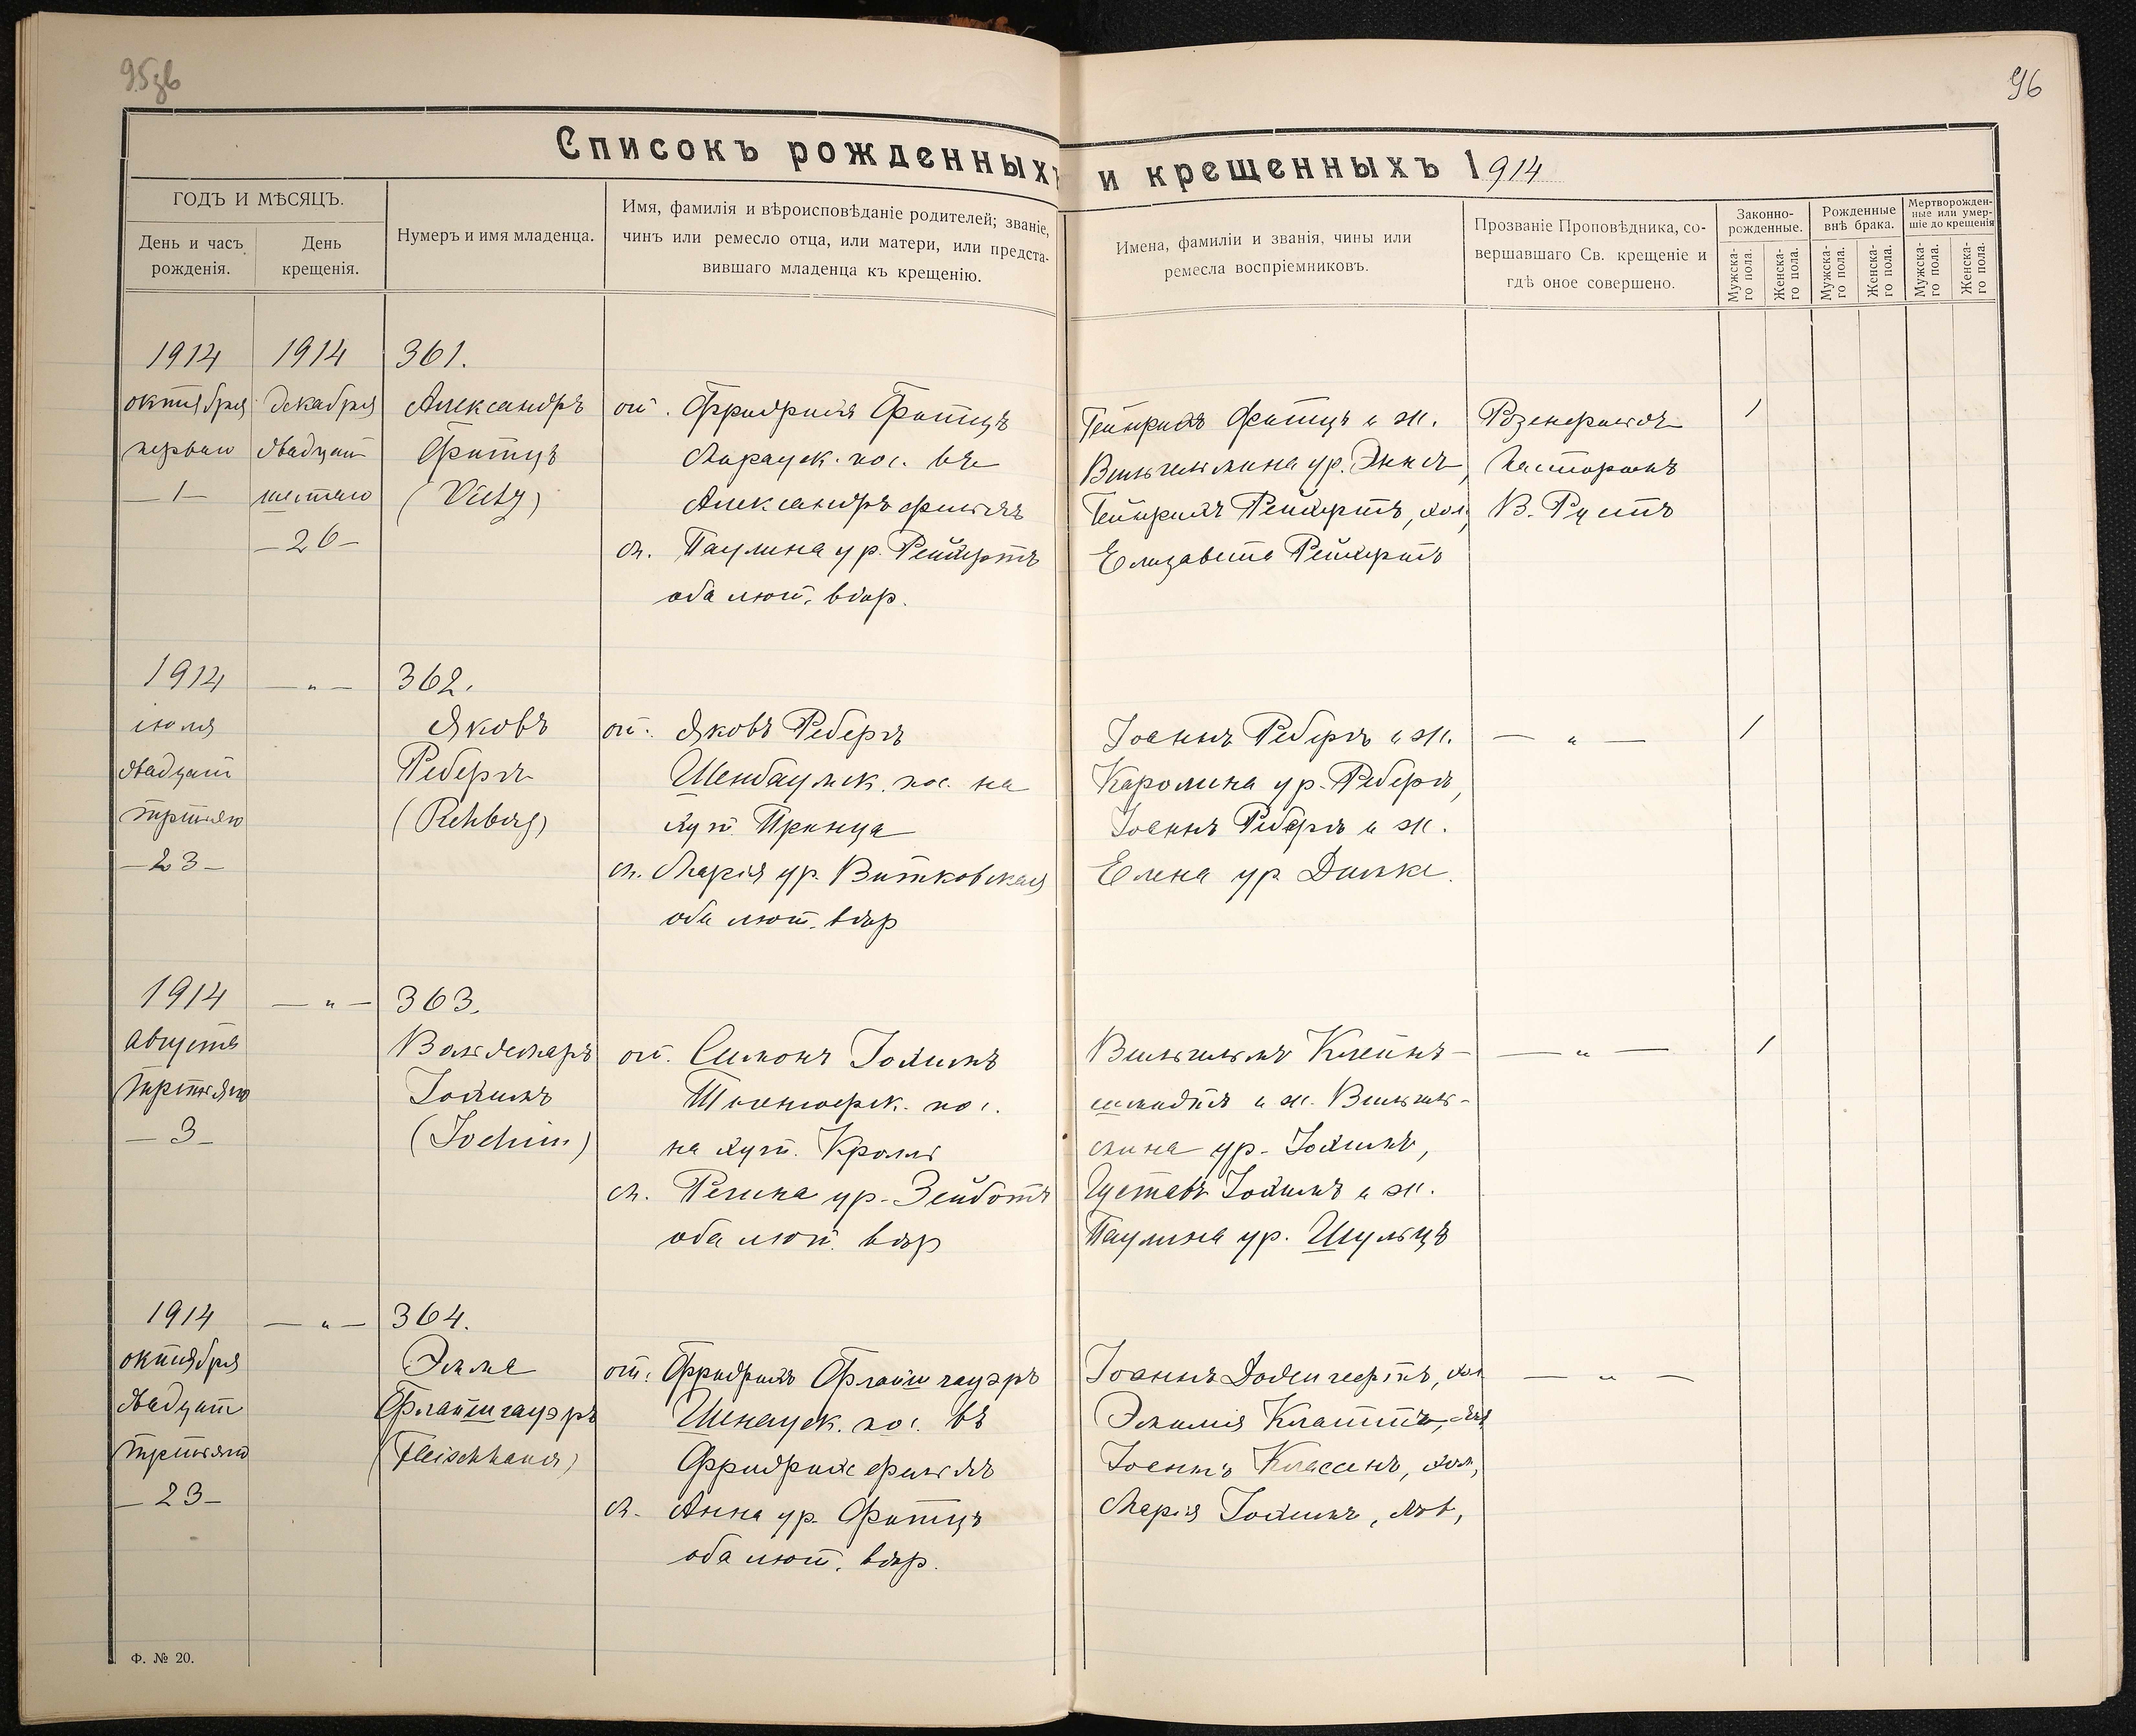 96
Списокъ рожденныхъ и крещенныхъ 1914
ГОДЪ И МѢСЯЦЪ.
День и часъ рожденія.
День крещенія.
Нумеръ и имя младенца.
Имя, фамилія и вѣроисповѣданіе родителей; званіе,
чинъ или ремесло отца, или матери, или предста-
вившаго младенца къ крещенію.
Имена, фамиліи и званія, чины или
ремесла воспріемниковъ.
Прозваніе Проповѣдника, со-
вершавшаго Св. крещеніе и
гдѣ оное совершено.
Законно-
рожденные.
Рожденные
внѣ брака.
Мертворожден-
ные или умер-
шіе до крещенія
Мужска-
го пола.
Женска-
го пола.
Мужска-
го пола.
Женска-
го пола.
Мужска-
го пола.
Женска-
го пола.
1914
октября
перваго
—1—
1914
декабря
двадцат
шестаго
—26—
361.
Александръ
Фитцъ
(Vietz)
от. Фридрихъ Фитцъ
пос. въ
Александрфельдъ
м. Паулина ур. Рейхертъ
оба лют. вѣр.
Гейнрихъ Фитцъ и ж.
Вильгельмина ур.
Гейнрихъ Рейхертъ, хол,
Елизавета Рейхертъ
Розенфельдъ
Пасторомъ
В.
1
1914
іюля
двадцат
третьяго
—23—
— " —
362.
Яковъ
Ребергъ
(Rehberg)
от. Яковъ Ребергъ
Шенбаумск. пос. на
хут. Принца
м. Марія ур. Витковская
оба лют. вѣр
Іоаннъ Ребергъ и ж.
Каролина ур. Ребергъ,
Іоаннъ Ребергъ и ж.
Елена ур.
— " —
1
1914
августа
третьяго
—3—
— " —
363.
Вольдемаръ
Іохимъ
(Jochim)
от. Симонъ Іохимъ
пос.
на хут. Кроль
м. Регина ур. Зейботъ
оба лют. вѣр
Вильгельмъ Клейн-
шмидтъ и ж. Вильгель-
мина ур. Іохимъ,
Густавъ Іохимъ и ж.
Паулина ур. Шульцъ
— " —
1
1914
октября
двадцат
третьяго
—23—
— " —
364.
Эмма
Флайшгауэръ
от. Фридрихъ Флайшгауэръ
пос. въ
Фридрихсфельдъ
м. Анна ур. Фитцъ
оба лют. вѣр.
Эмилія
Іоаннъ Классенъ, хол,
Марія Іохимъ, дѣв,
— " —
Ф. № 20.